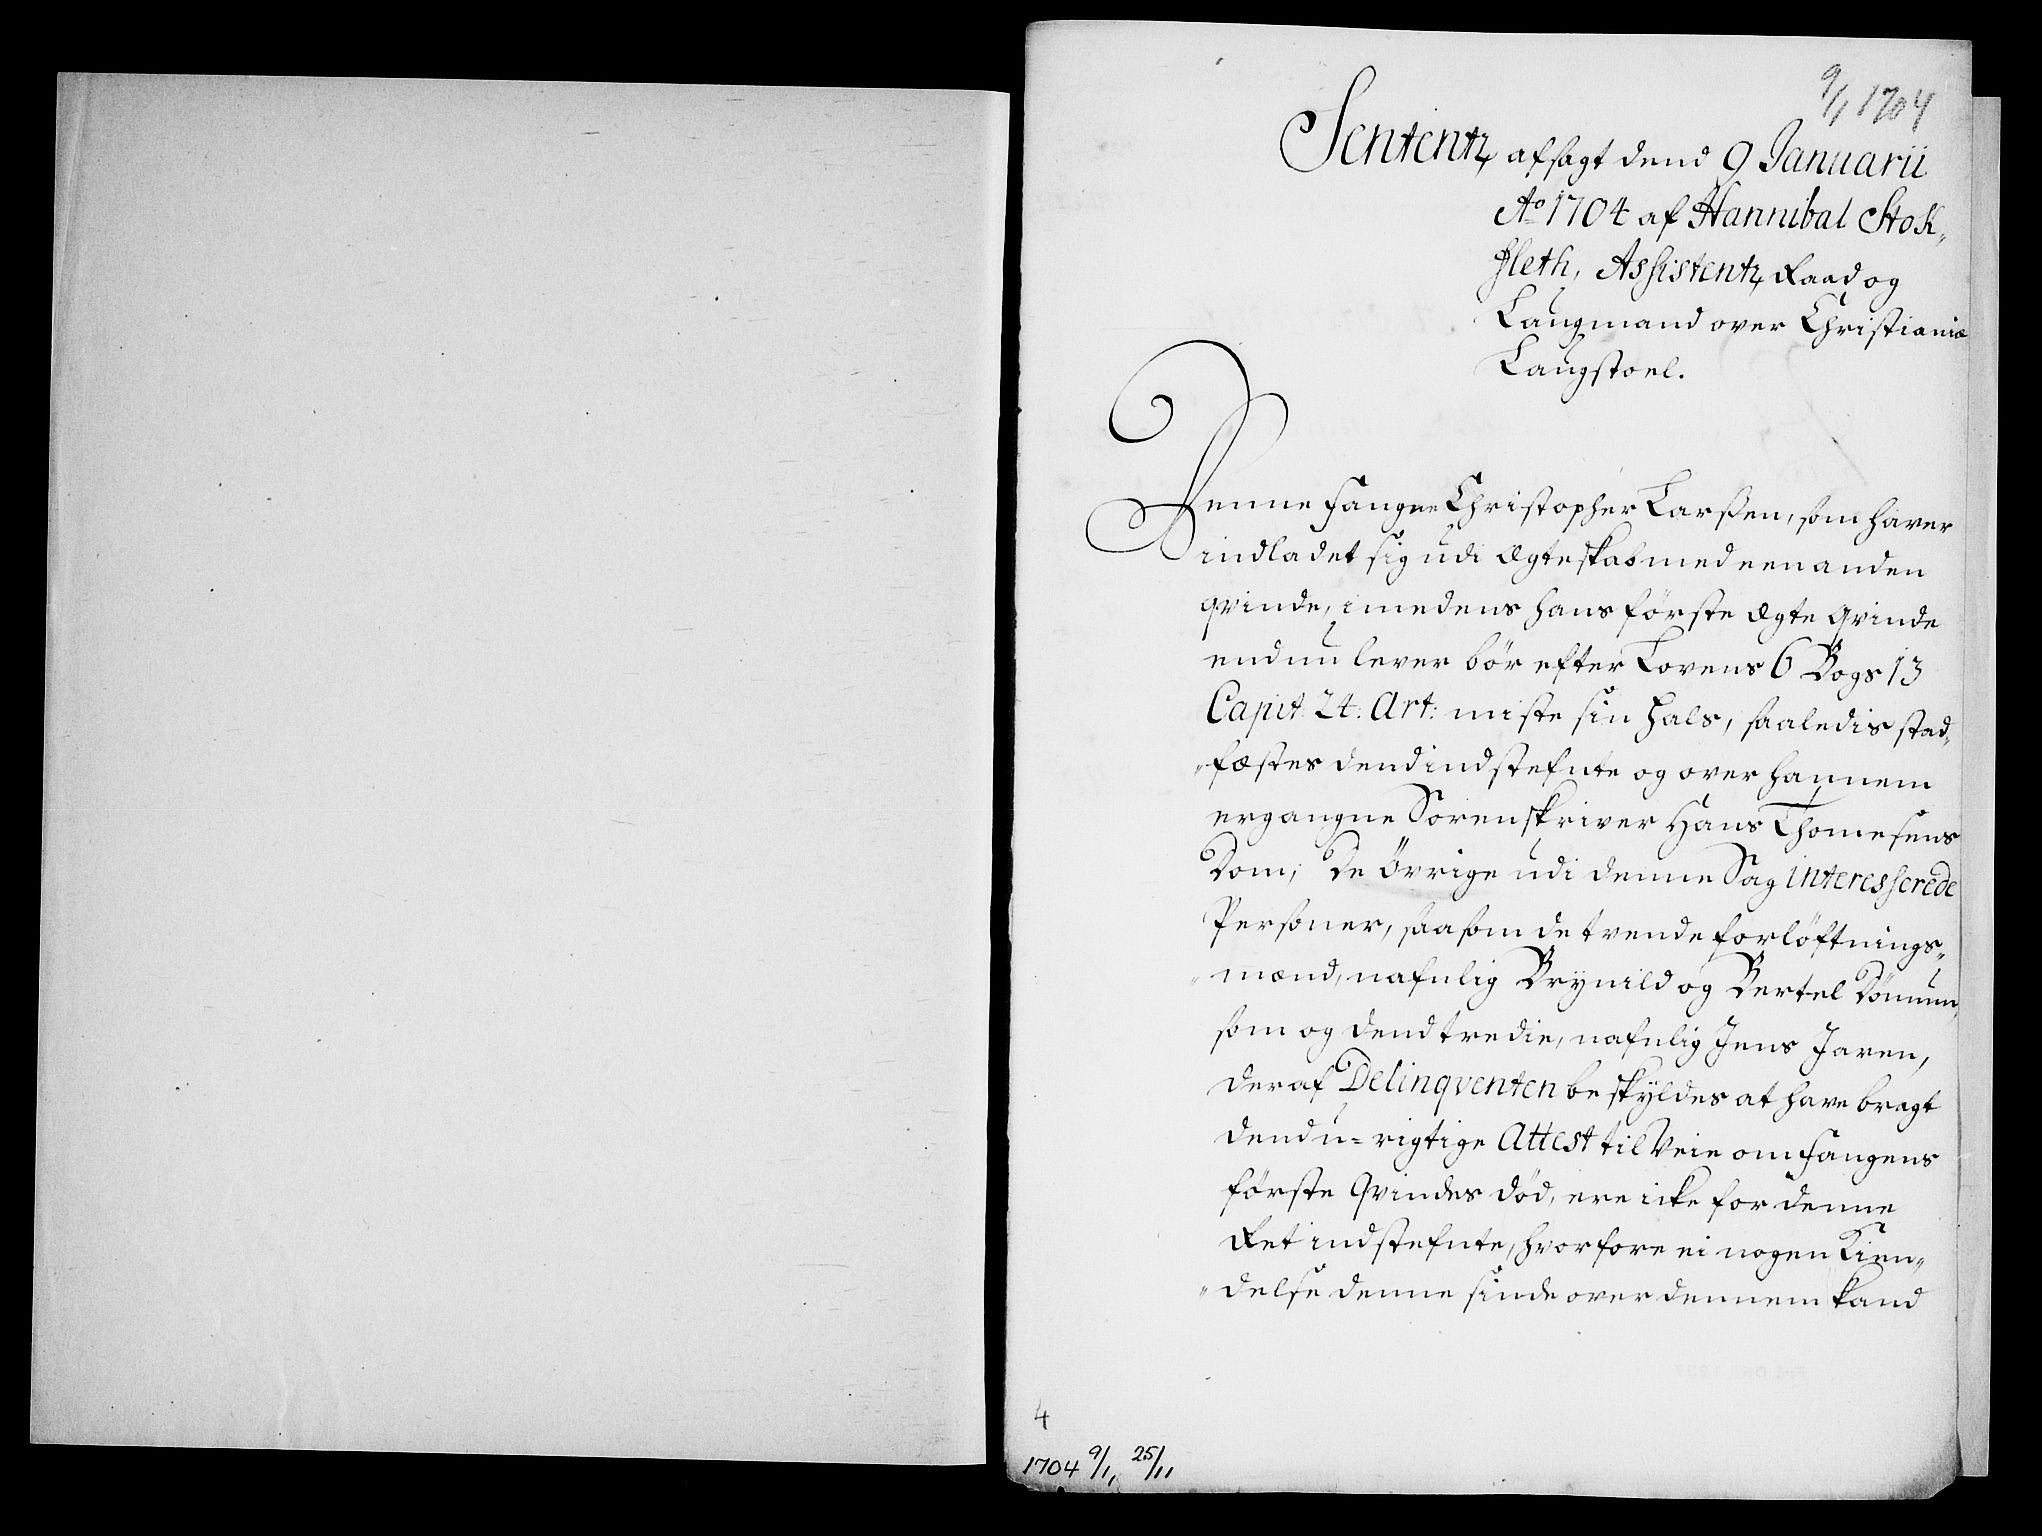 9/1 1704
Sententz afsagt dend 9 Januarii
Ao 1704 af Hannibal Stok„
fleth, Assistentz Raad og
Laugmand over Christianiæ
Laugstoel.
Denne fangne Christopher Larssen, som haver
indladet sig udi Ægteskab med een anden
qvinde, imedens hans förste Ægte Qvinde
endnu lever bör efter Lovens 6 Bogs 13
Capit: 24: Art: miste sin Hals, saaledis stad„
„fæstes dend indstefnte og over hannem
ergangne Sorenskriver Hans Thomesens
Dom; De Övrige udi denne Sag interesserede
Personer, saasom de tvende forlöftnings„
„mænd, nafnlig Brynild og Bertel
som og dend tredie, nafnlig Jens Jaren,
der af Delinqventen beskyldes at have bragt
dend u=rigtige Attest til Veie om fangens
förste Qvindes död, ere icke for denne
Ret indstefnte, hvorfore ei nogen Kien„
„delse denne sinde over dennem kand
4
1704 9/1, 25/11